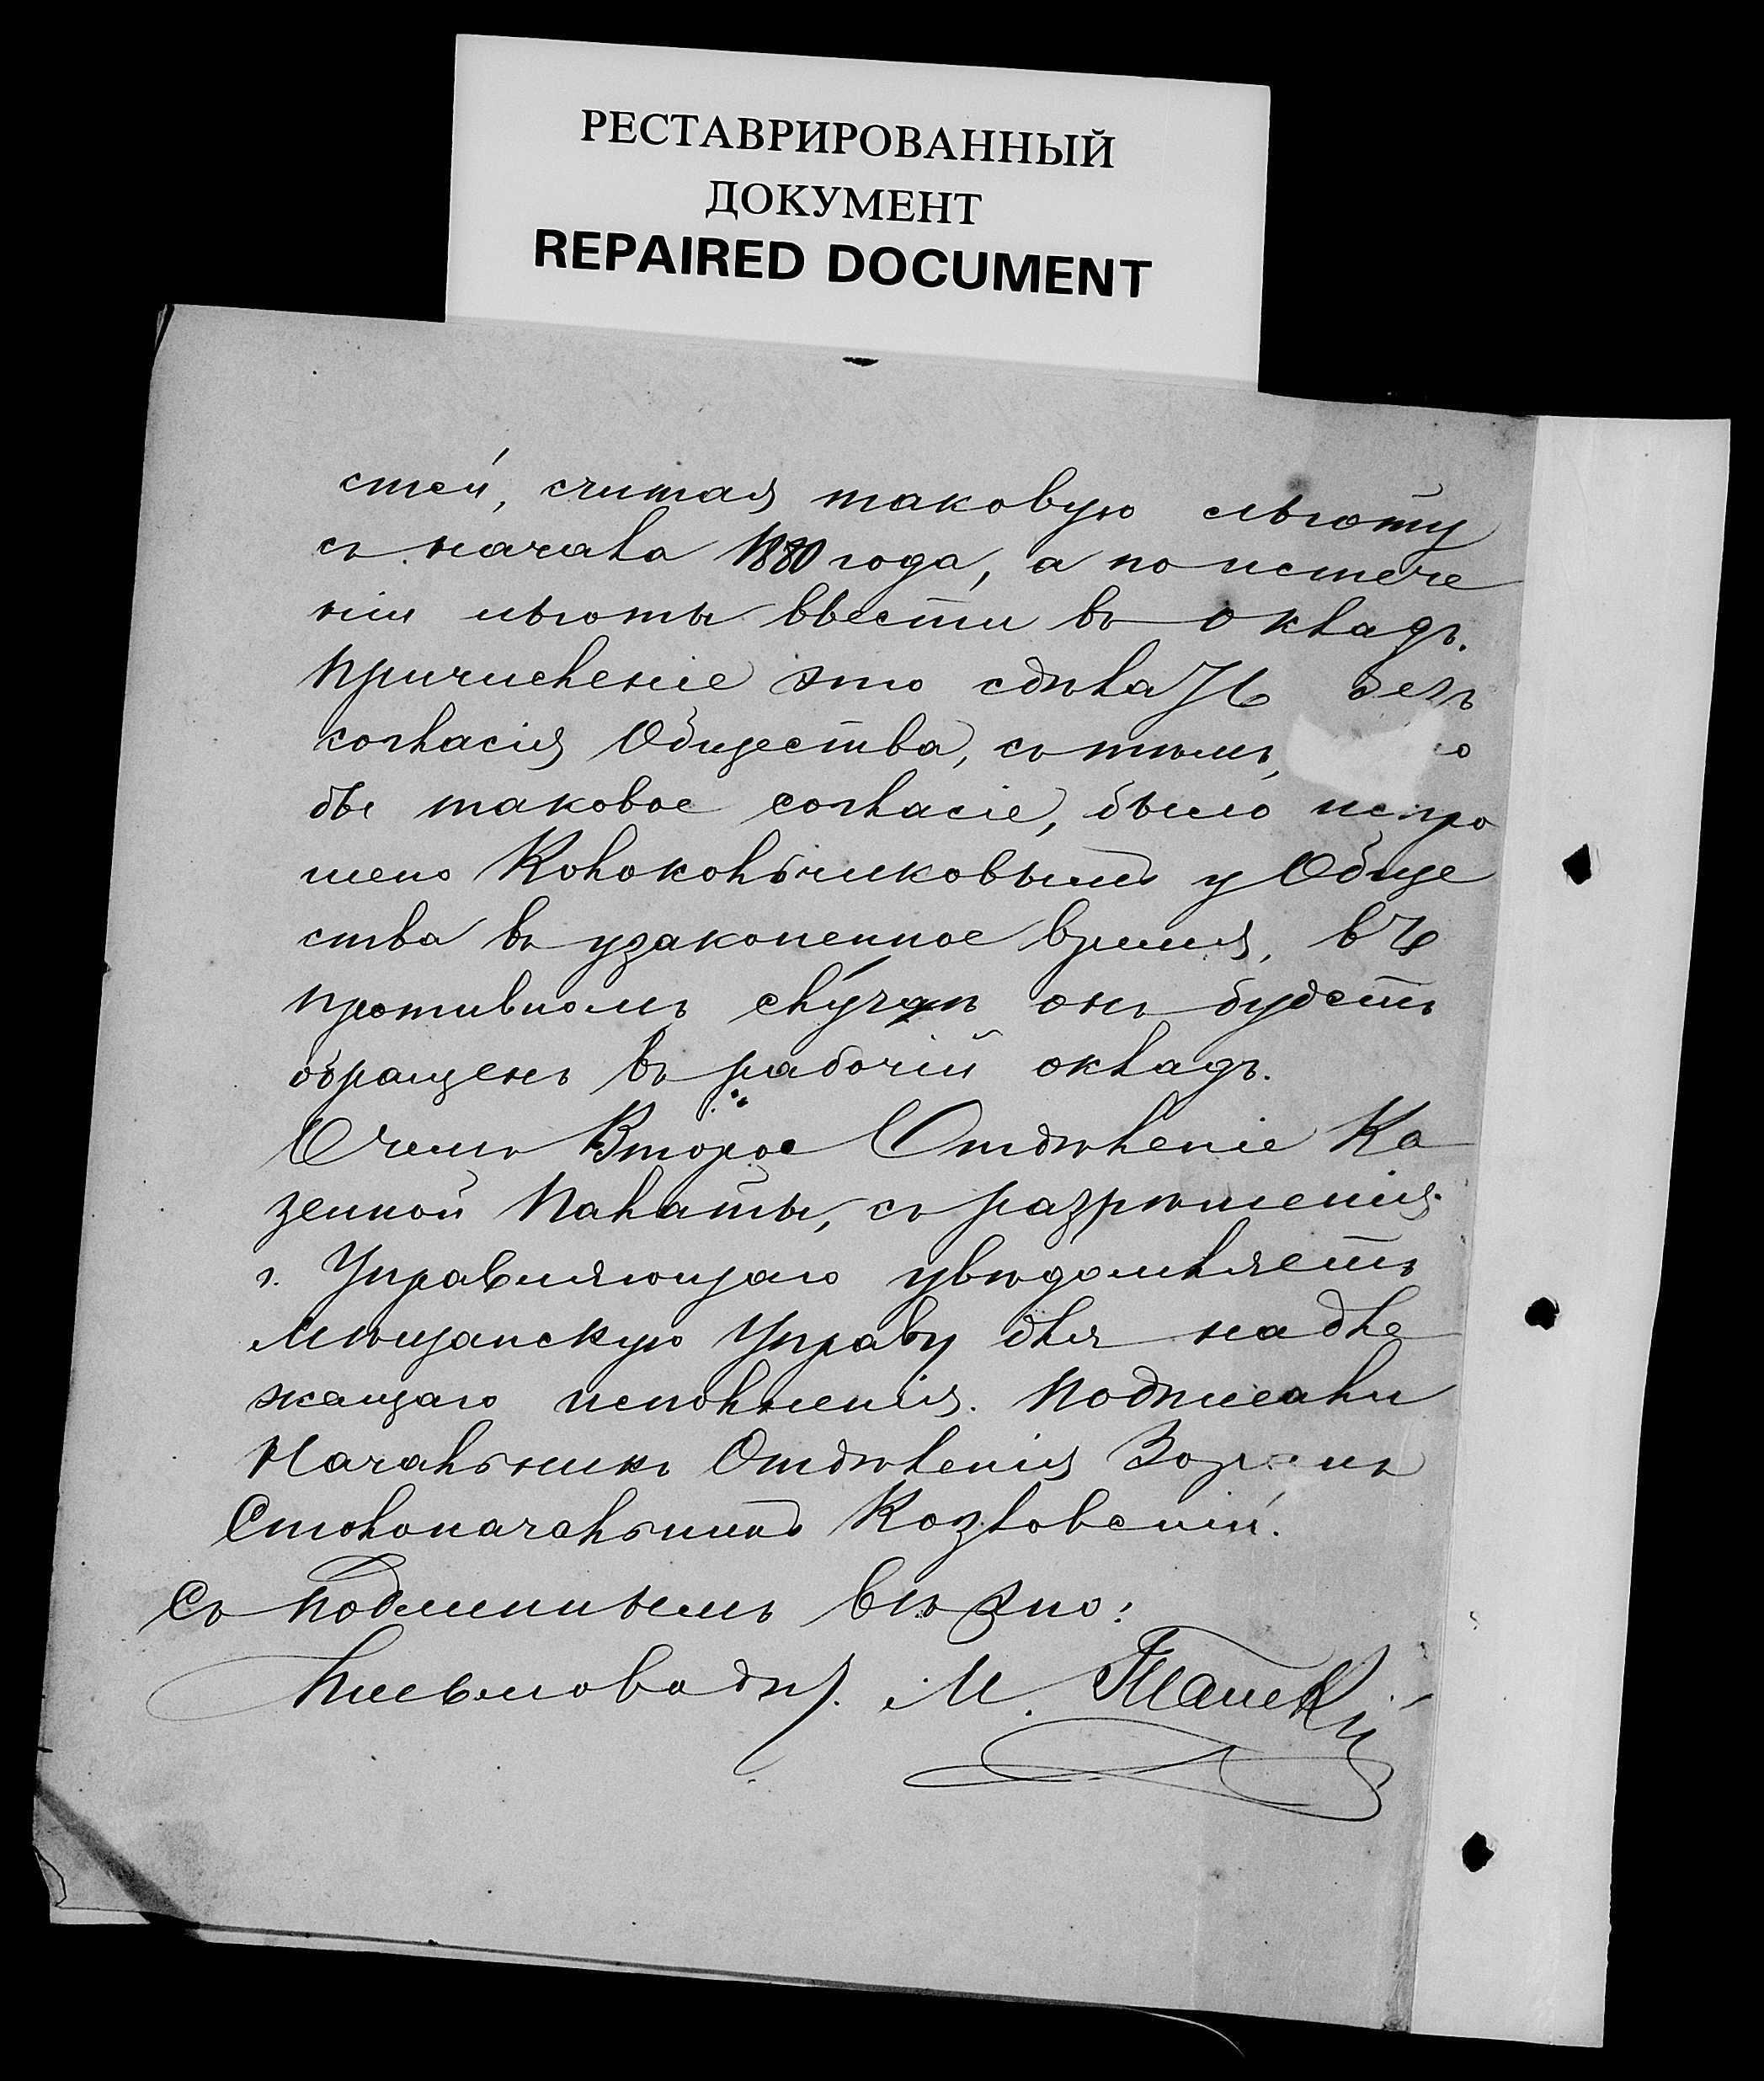 РЕСТАВРИРОВАННЫЙ
ДОКУМЕНТ
REPAIRED DOCUMENT
стей, считая таковую льготу
съ начала 1880 года, а по истече
ніи льготы ввести въ окладъ.
Причисленіе это сдѣлать безъ
согласія Общества, съ тѣмъ,
бы таковое согласіе, было испро
шено Колокольчиковымъ у Обще
ства въ узаконенное время, въ
противномъ случаѣ онъ будетъ
обращенъ въ рабочій окладъ.
О чемъ Второе Отдѣленіе Ка
зенной Палаты, съ разрѣшенія
г. Управляющаго увѣдомляетъ
Мѣщанскую Управу для надле
жащаго исполненія. Подписали
Начальникъ Отдѣленія
Столоначальникъ Козловскій.
Съ подлиннымъ вѣрно:
Письмовод. М.